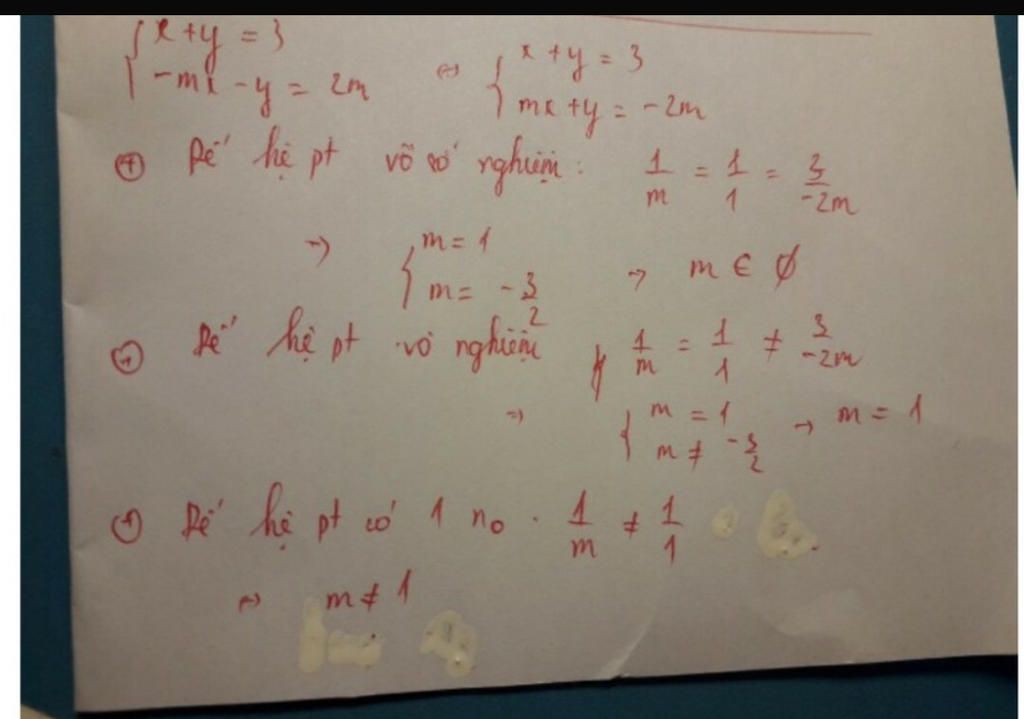 { x + y = 3
{ -mx - y = 2m
⇔ { x + y = 3
{ mx + y = -2m
(+) Để hệ pt vô số nghiệm: 1/m = 1/1 = 3/-2m
→ { m = 1
{ m = -3/2
→ m ∈ ∅
(+) Để hệ pt vô nghiệm 1/m = 1/1 ≠ 3/-2m
⇒ { m = 1
{ m ≠ -3/2
→ m = 1
(+) Để hệ pt có 1 no. 1/m ≠ 1/1
⇔ m ≠ 1